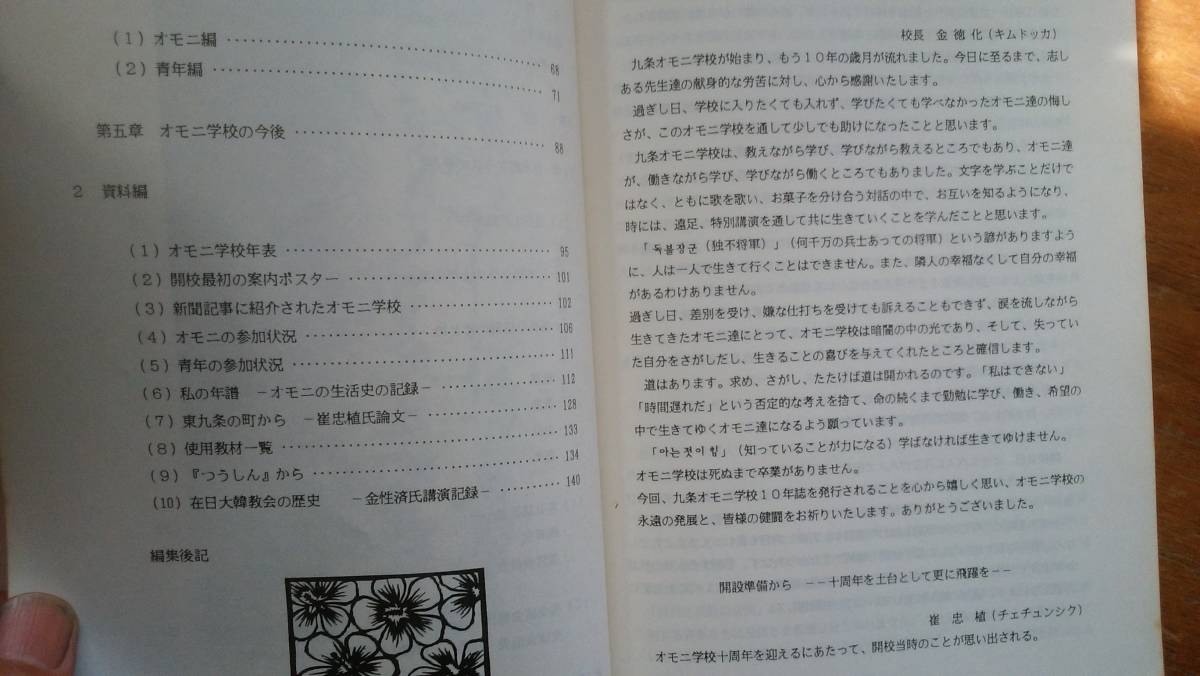 (1) オモニ編 ‥‥‥‥‥‥‥‥ 68
(2) 青年編 ‥‥‥‥‥‥‥‥ 71
第五章 オモニ学校の今後 ‥‥‥‥‥‥‥‥ 88
2 資料編
(1) オモニ学校年表 ‥‥‥‥‥‥‥‥ 95
(2) 開校最初の案内ポスター ‥‥‥‥‥‥‥‥ 101
(3) 新聞記事に紹介されたオモニ学校 ‥‥‥‥‥‥‥‥ 102
(4) オモニの参加状況 ‥‥‥‥‥‥‥‥ 106
(5) 青年の参加状況 ‥‥‥‥‥‥‥‥ 111
(6) 私の年譜 －オモニの生活史の記録－ ‥‥‥‥‥‥‥‥ 112
(7) 東九条の町から －崔忠植氏論文－ ‥‥‥‥‥‥‥‥ 128
(8) 使用教材一覧 ‥‥‥‥‥‥‥‥ 133
(9) 『つうしん』から ‥‥‥‥‥‥‥‥ 134
(10) 在日大韓教会の歴史 －金性済氏講演記録－ ‥‥‥‥‥‥‥‥ 140
編集後記
校長 金徳化(キムドッカ)
九条オモニ学校が始まり、もう10年の歳月が流れました。今日に至るまで、志し
ある先生達の献身的な労苦に対し、心から感謝いたします。
過ぎし日、学校に入りたくても入れず、学びたくても学べなかったオモニ達の悔し
さが、このオモニ学校を通して少しでも助けになったことと思います。
九条オモニ学校は、教えながら学び、学びながら教えるところでもあり、オモニ達
が、働きながら学び、学びながら働くところでもありました。文字を学ぶことだけで
はなく、ともに歌を歌い、お菓子を分け合う対話の中で、お互いを知るようになり、
時には、遠足、特別講演を通して共に生きていくことを学んだことと思います。
「독불장군(独不将軍)」(何千万の兵士あっての将軍)という諺がありますよう
に、人は一人で生きて行くことはできません。また、隣人の幸福なくして自分の幸福
があるわけありません。
過ぎし日、差別を受け、嫌な仕打ちを受けても訴えることもできず、涙を流しながら
生きてきたオモニ達にとって、オモニ学校は暗闇の中の光であり、そして、失ってい
た自分をさがしだし、生きることの喜びを与えてくれたところと確信します。
道はあります。求め、さがし、たたけば道は開かれるのです。「私はできない」
「時間遅れだ」という否定的な考えを捨て、命の続くまで勤勉に学び、働き、希望の
中で生きてゆくオモニ達になるよう願っています。
「아는것이힘」(知っていることが力になる)学ばなければ生きてゆけません。
オモニ学校は死ぬまで卒業がありません。
今回、九条オモニ学校10年誌を発行されることを心から嬉しく思い、オモニ学校の
永遠の発展と、皆様の健闘をお祈りいたします。ありがとうございました。
開設準備から －－十周年を土台として更に飛躍を－－
崔忠植(チェチュンシク)
オモニ学校十周年を迎えるにあたって、開校当時のことが思い出される。